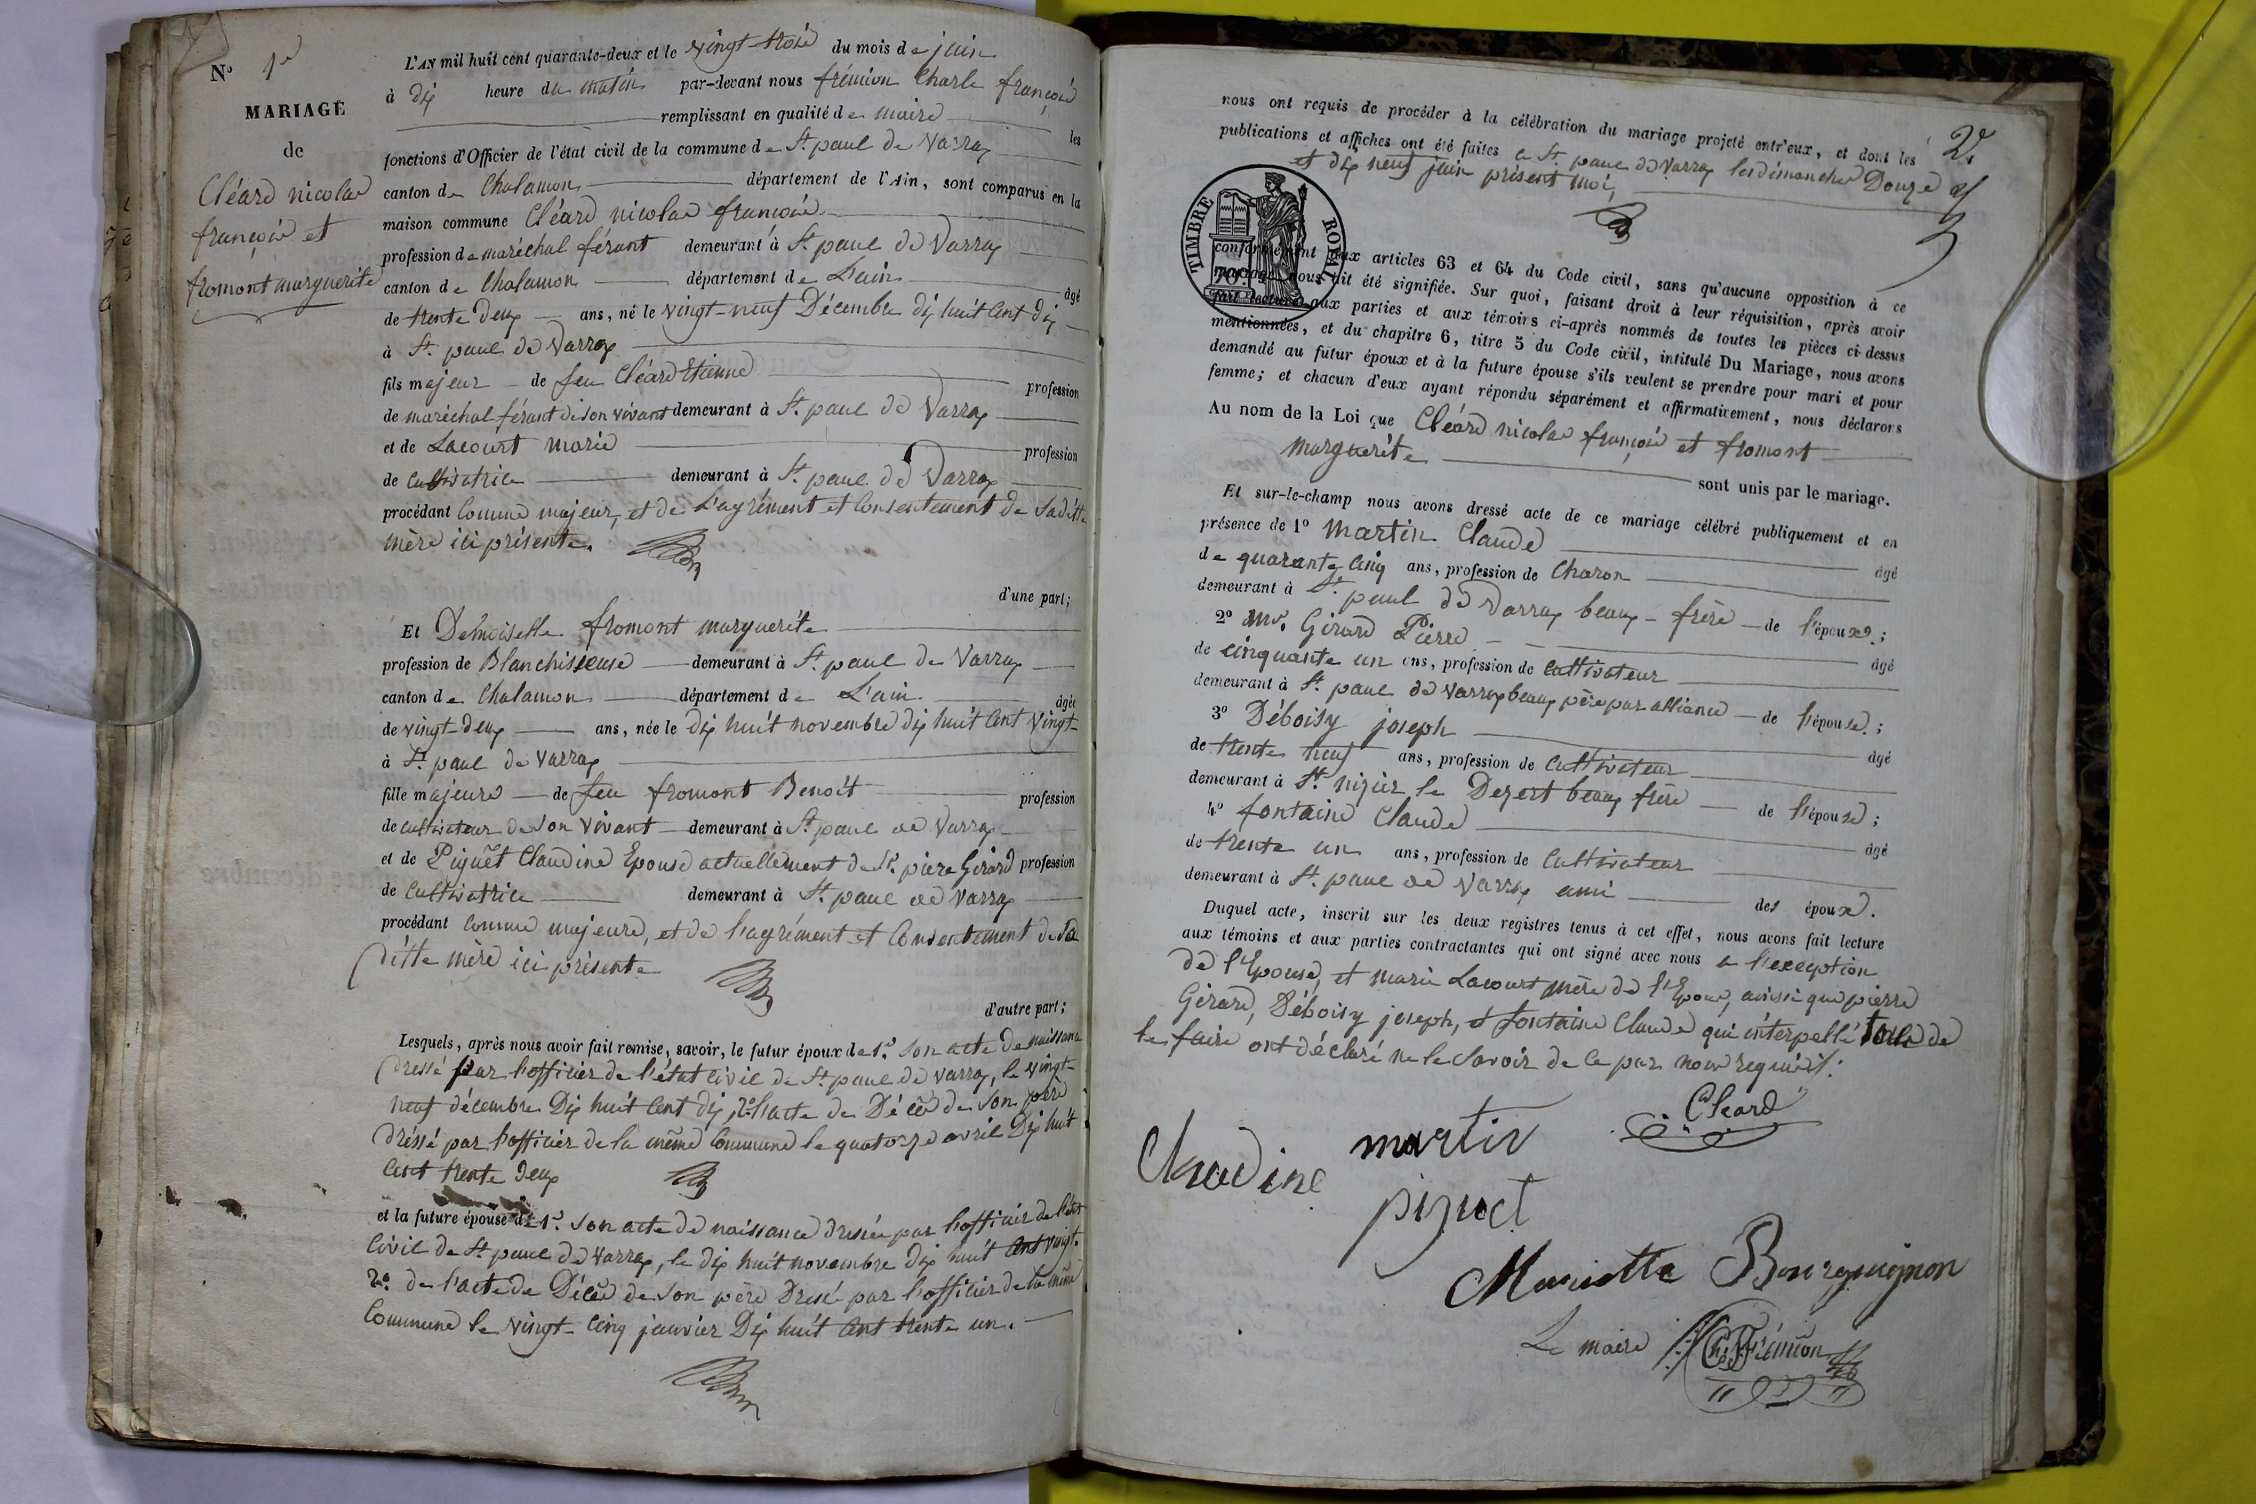 N° 1er
MARIAGE
de
Cléard nicolas
françois et
fromont marguerite
L'AN mil huit cent quarante-deux et le vingt-trois du mois de juin
à dix heure du matin par-devant nous frémion Charle françois
remplissant en qualité de maire les
fonctions d'Officier de l'état civil de la commune de St. paul de Varax
canton de Chalamon département de l'Ain, sont comparus en la
maison commune Cléard nicolas françois
profession de maréchal férant demeurant à St. paul de Varrax
canton de Chalamon département de L'ain âgé
de trente deux ans, né le vingt-neuf Décembre dix huit Cent dix
à St. paul de Varrax
fils majeur de feu Cléard Etienne profession
de maréchal férant de son vivant demeurant à St. paul de Varrax
et de Lacourt marie profession
de cultivatrice demeurant à St. paul de Varrax
procédant Comme majeur, et de L'agrément et Consentement de Saditte
mère ici présente.
d'une part;
Et Demoiselle fromont marguerite
profession de Blanchisseuse demeurant à St. paul de Varrax
canton de Chalamon département de L'ain âgée
de vingt-deux ans, née le dix huit novembre dix huit Cent vingt
à St. paul de Varrax
fille majeure de feu fromont Benoit profession
de cultivateur de Son vivant demeurant à St. paul de Varrax
et de Piquet Claudine Epouse actuellement de Sr. piere Girard profession
de Cultivatrice demeurant à St. paul de Varrax
procédant Comme majeure, et de l'agrément et Consentement de Sa
ditte mère ici présente
d'autre part;
Lesquels, après nous avoir fait remise, savoir, le futur époux de 1° Son acte de naissance
dressé par l'officier de l'état civil de St. paul de Varrax, le vingt-
neuf décembre Dix huit Cent dix, 2° l'acte de Décès de Son père
dréssé par l'officier de la même Commune le quatorze avril Dix huit
Cent trente deux
et la future épouse de 1° Son acte de naissance dressée par l'officier de l'état
Civil de St. paul de Varrax, le dix huit novembre dix huit Cent vingt.
2° de l'acte de Décès de Son père Dressé par l'officier de la même
Commune le vingt-Cinq janvier Dix huit Cent trente un.
2e
nous ont requis de procéder à la célébration du mariage projeté entr'eux, et dont les
publications et affiches ont été faites a St. paul de Varrax les dimanches Douze
et dix neuf juin présent moi,
TIMBRE ROYAL
conformément aux articles 63 et 64 du Code civil, sans qu'aucune opposition à ce
mariage nous ait été signifiée. Sur quoi, faisant droit à leur réquisition, après avoir
fait lecture aux parties et aux témoins ci-après nommés de toutes les pièces ci-dessus
mentionnées, et du chapitre 6, titre 5 du Code civil, intitulé Du Mariage, nous avons
demandé au futur époux et à la future épouse s'ils veulent se prendre pour mari et pour
femme; et chacun d'eux ayant répondu séparément et affirmativement, nous déclarons
Au nom de la Loi que Cléard nicolas françois et fromont
marguerite sont unis par le mariage.
Et sur-le-champ nous avons dressé acte de ce mariage célébré publiquement et en
présence de 1° Martin Claude âgé
de quarante Cinq ans, profession de Charon
demeurant à St. paul de Varrax beaux-frère de l'époux;
2° Girard Pierre âgé
de cinquante un ans, profession de Cultivateur
demeurant à St. paul de Varrax beaux père par alliance de l'épouse;
3° Déboisy joseph âgé
de trente neuf ans, profession de Cultivateur
demeurant à St. nizier le Dezert beaux frère de l'épouse;
4° fontaine Claude âgé
de trente un ans, profession de Cultivateur
demeurant à St. paul de Varrax ami des époux.
Duquel acte, inscrit sur les deux registres tenus à cet effet, nous avons fait lecture
aux témoins et aux parties contractantes qui ont signé avec nous a l'exeception
de l'Epouse, et marie Lacourt mère de l'Epoux, ainsi que pierre
Girard, Déboisy joseph, et fontaine Claude qui interpellé tous de
le faire ont déclaré ne le Savoir de ce par nous requis.
Cleard
martin
Claudine
piquet
Mariette Bourguignon
Le maire Ch. F. Frémion